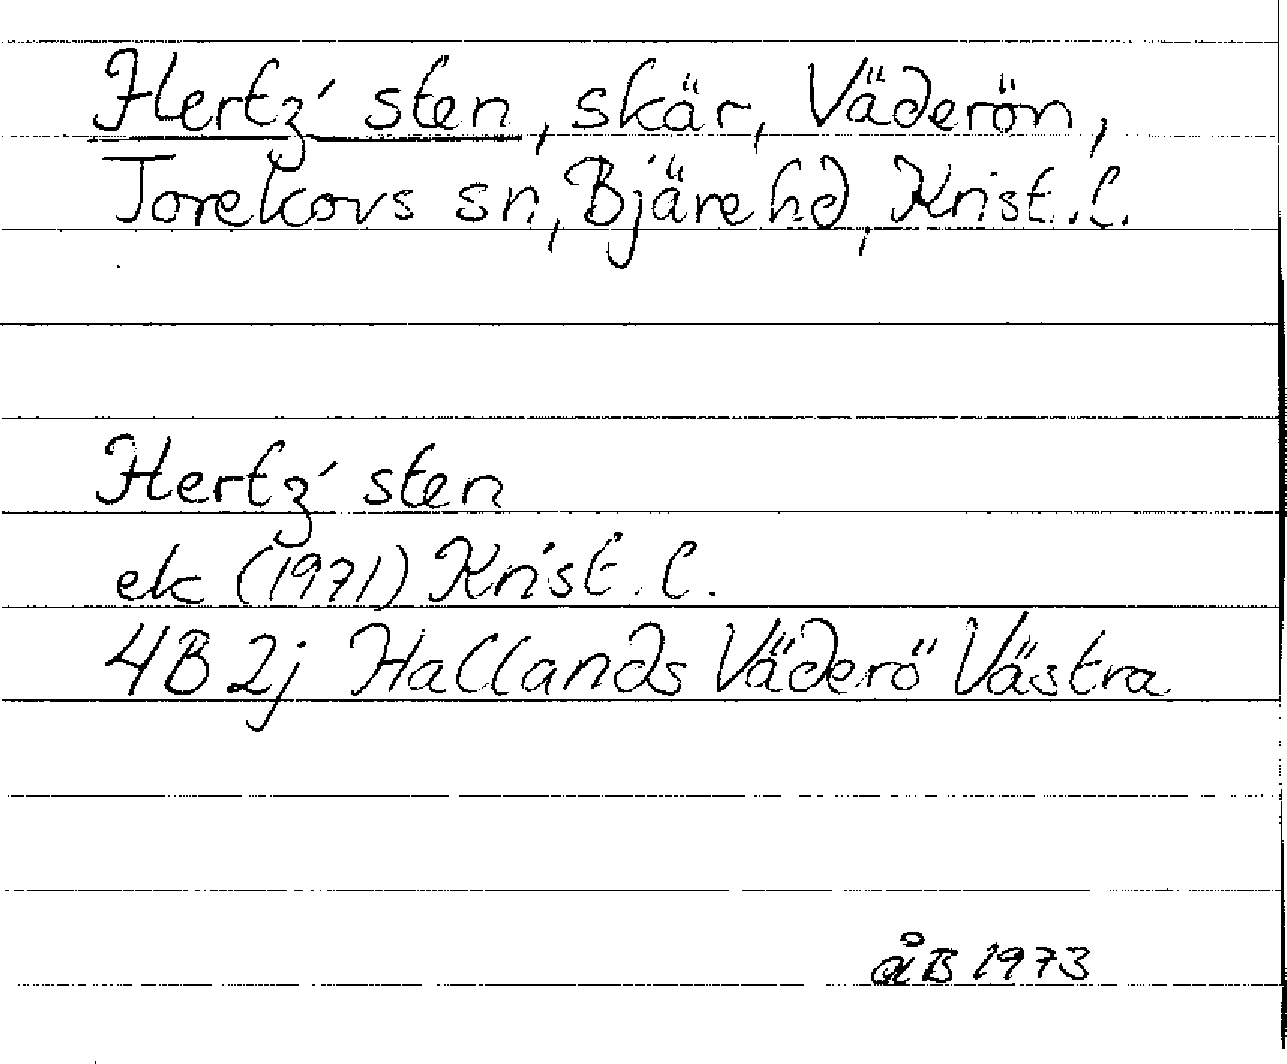 Hertz' sten, skär, Väderön,
Torekovs sn, Bjäre hd, Krist. l.
Hertz' sten
ek (1971) Krist. l.
4B 2j Hallands Väderö Västra
åB 1973